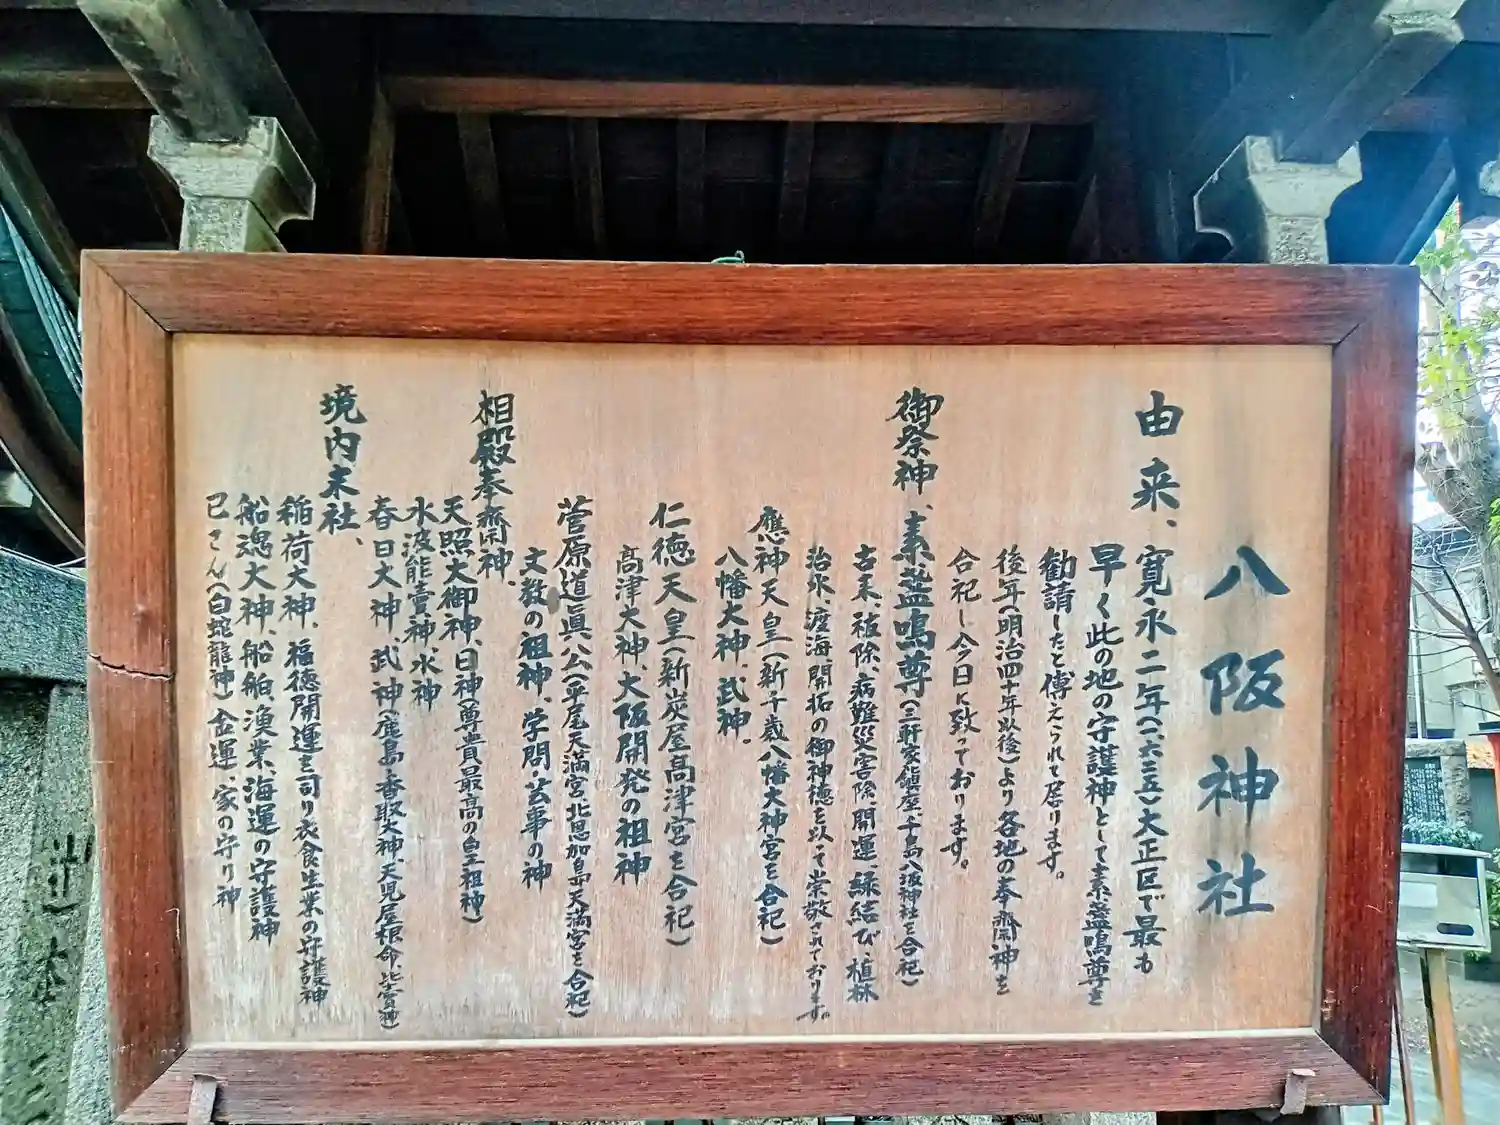 八阪神社
由来、寛永二年(一六二五)大正区で最も
早く此の地の守護神として素盞嗚尊を
勧請したと傳えられて居ります。
後年(明治四十年以後)より各地の奉齋神を
合祀し今日に致っております。
御祭神、素盞嗚尊(三軒家鎮座、千島八阪神社を合祀)
古来、祓除、病難災害除、開運、縁結び、植林
治水、渡海開拓の御神徳を以って崇敬されております。
應神天皇(新千歳八幡大神宮を合祀)
八幡大神、武神。
仁徳天皇(新炭屋高津宮を合祀)
高津大神、大阪開発の祖神
菅原道眞公(平尾天満宮北恩加島天満宮を合祀)
文教の祖神、学問・芸事の神
相殿奉齋神、
天照大御神、日神(尊貴最高の皇祖神)
水波能賣神、水神
春日大神、武神(鹿島・香取大神、天児屋根命、比売神)
境内末社、
稲荷大神、福徳開運を司り衣食生業の守護神
船魂大神、船舶、漁業、海運の守護神
巳さん(白蛇龍神)金運、家の守り神